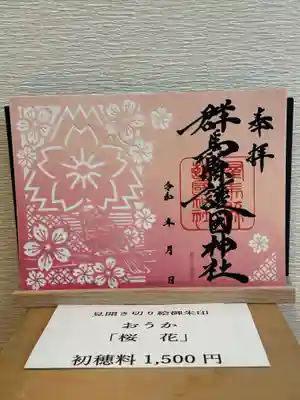 奉拝
群馬縣護国神社
令和 年 月 日
見開き切り絵御朱印
おうか
「桜 花」
初穂料 1,500 円